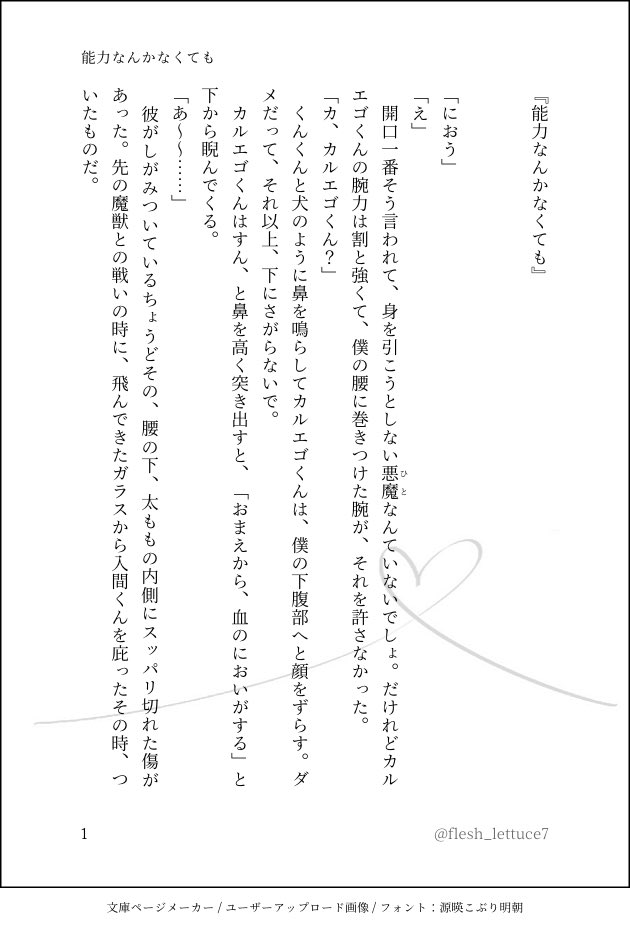 能力なんかなくても
『能力なんかなくても』
「におう」
「え」
　開口一番そう言われて、身を引こうとしない悪魔なんていないでしょ。だけれどカル
ひと
エゴくんの腕力は割と強くて、僕の腰に巻きつけた腕が、それを許さなかった。
「カ、カルエゴくん？」
　くんくんと犬のように鼻を鳴らしてカルエゴくんは、僕の下腹部へと顔をずらす。ダ
メだって、それ以上、下にさがらないで。
　カルエゴくんはすん、と鼻を高く突き出すと、「おまえから、血のにおいがする」と
下から睨んでくる。
「あ〜〜……」
　彼がしがみついているちょうどその、腰の下、太ももの内側にスッパリ切れた傷が
あった。先の魔獣との戦いの時に、飛んできたガラスから入間くんを庇ったその時、つ
いたものだ。
1
@flesh_lettuce7
文庫ページメーカー / ユーザーアップロード画像 / フォント：源暎こぶり明朝